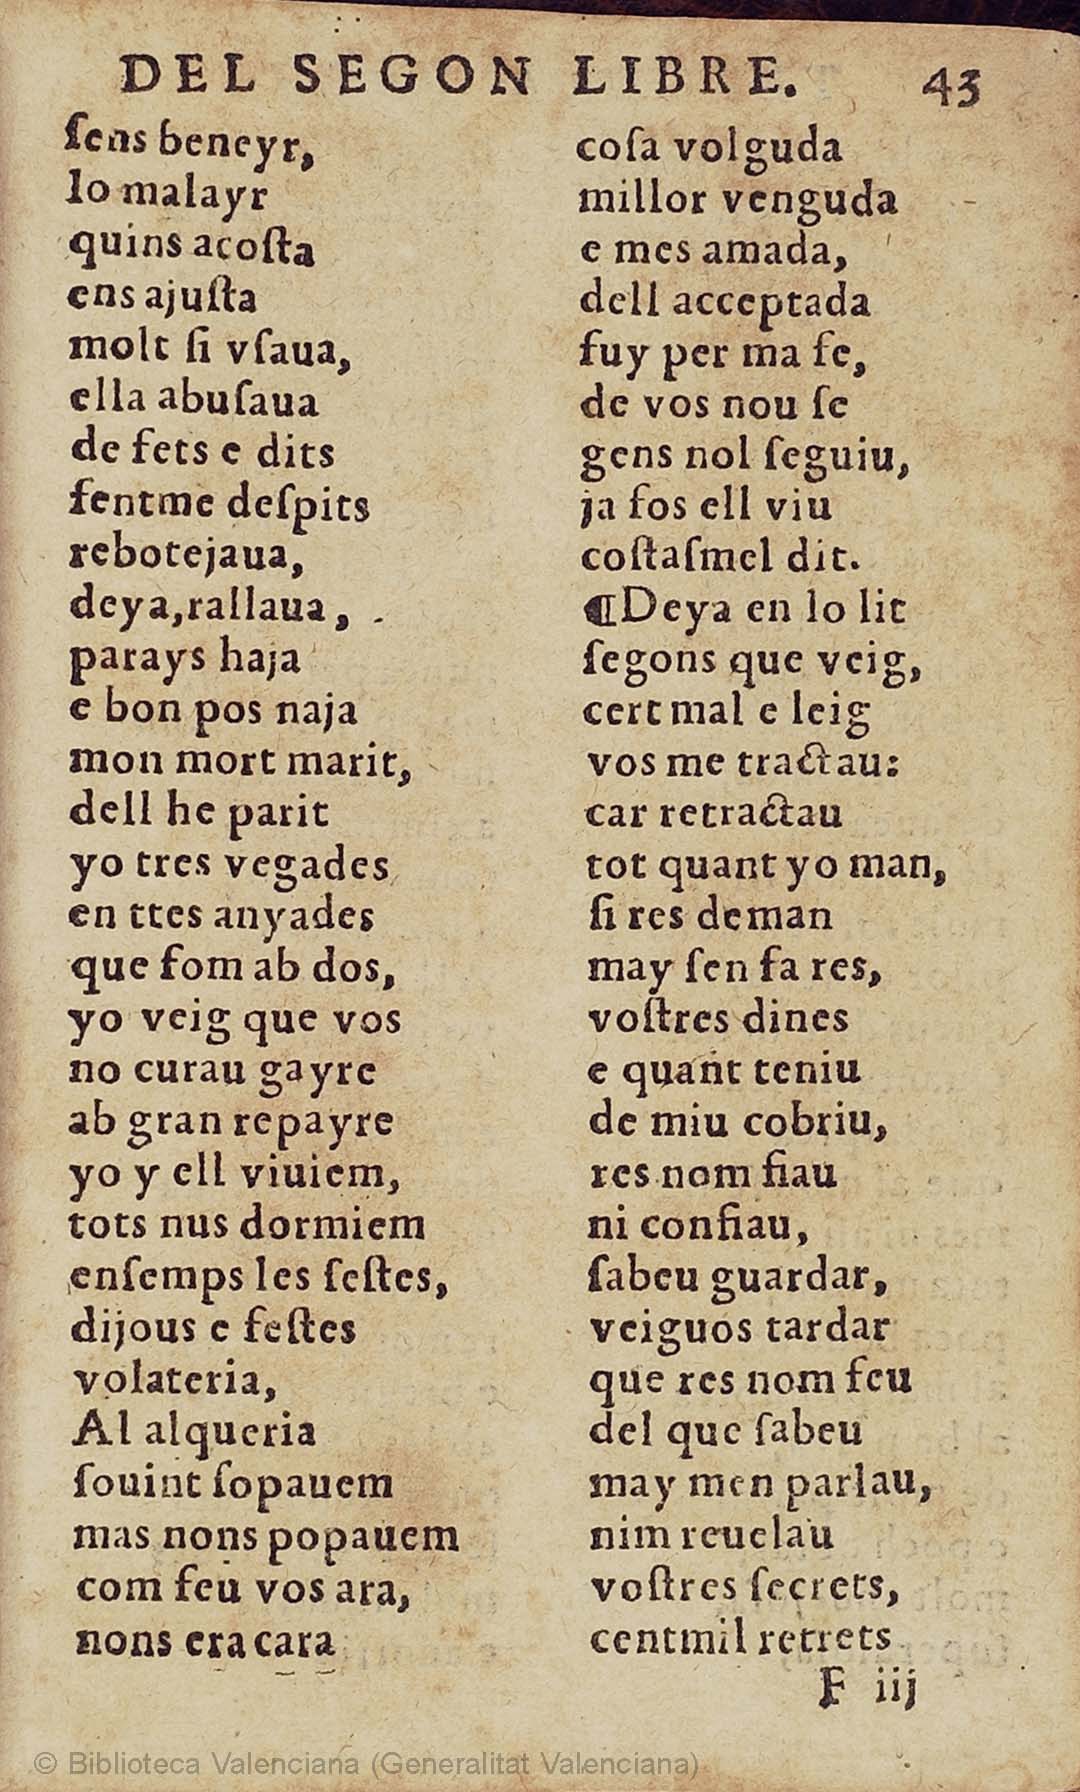 DEL SEGON LIBRE. 43
ſens beneyr,
lo malayr
quins acoſta
ens ajuſta
molt ſi vſaua,
ella abuſaua
de fets e dits
fentme deſpits
rebotejaua,
deya,rallaua,
parays haja
e bon pos naja
mon mort marit,
dell he parit
yo tres vegades
en ttes anyades
que fom ab dos,
yo veig que vos
no curau gayre
ab gran repayre
yo y ell viuiem,
tots nus dormiem
enſemps les ſeſtes,
dijous e feſtes
volateria,
Al alqueria
ſouint ſopauem
mas nons popauem
com feu vos ara,
nons era cara
coſa volguda
millor venguda
e mes amada,
dell acceptada
fuy per ma fe,
de vos nou ſe
gens nol ſeguiu,
ja fos ell viu
coſtaſmel dit.
¶Deya en lo lit
ſegons que veig,
cert mal e leig
vos me tractau:
car retractau
tot quant yo man,
ſi res deman
may ſen fa res,
voſtres dines
e quant teniu
de miu cobriu,
res nom fiau
ni confiau,
ſabeu guardar,
veiguos tardar
que res nom feu
del que ſabeu
may men parlau,
nim reuelau
voſtres ſecrets,
centmil retrets
F iij
© Biblioteca Valenciana (Generalitat Valenciana)